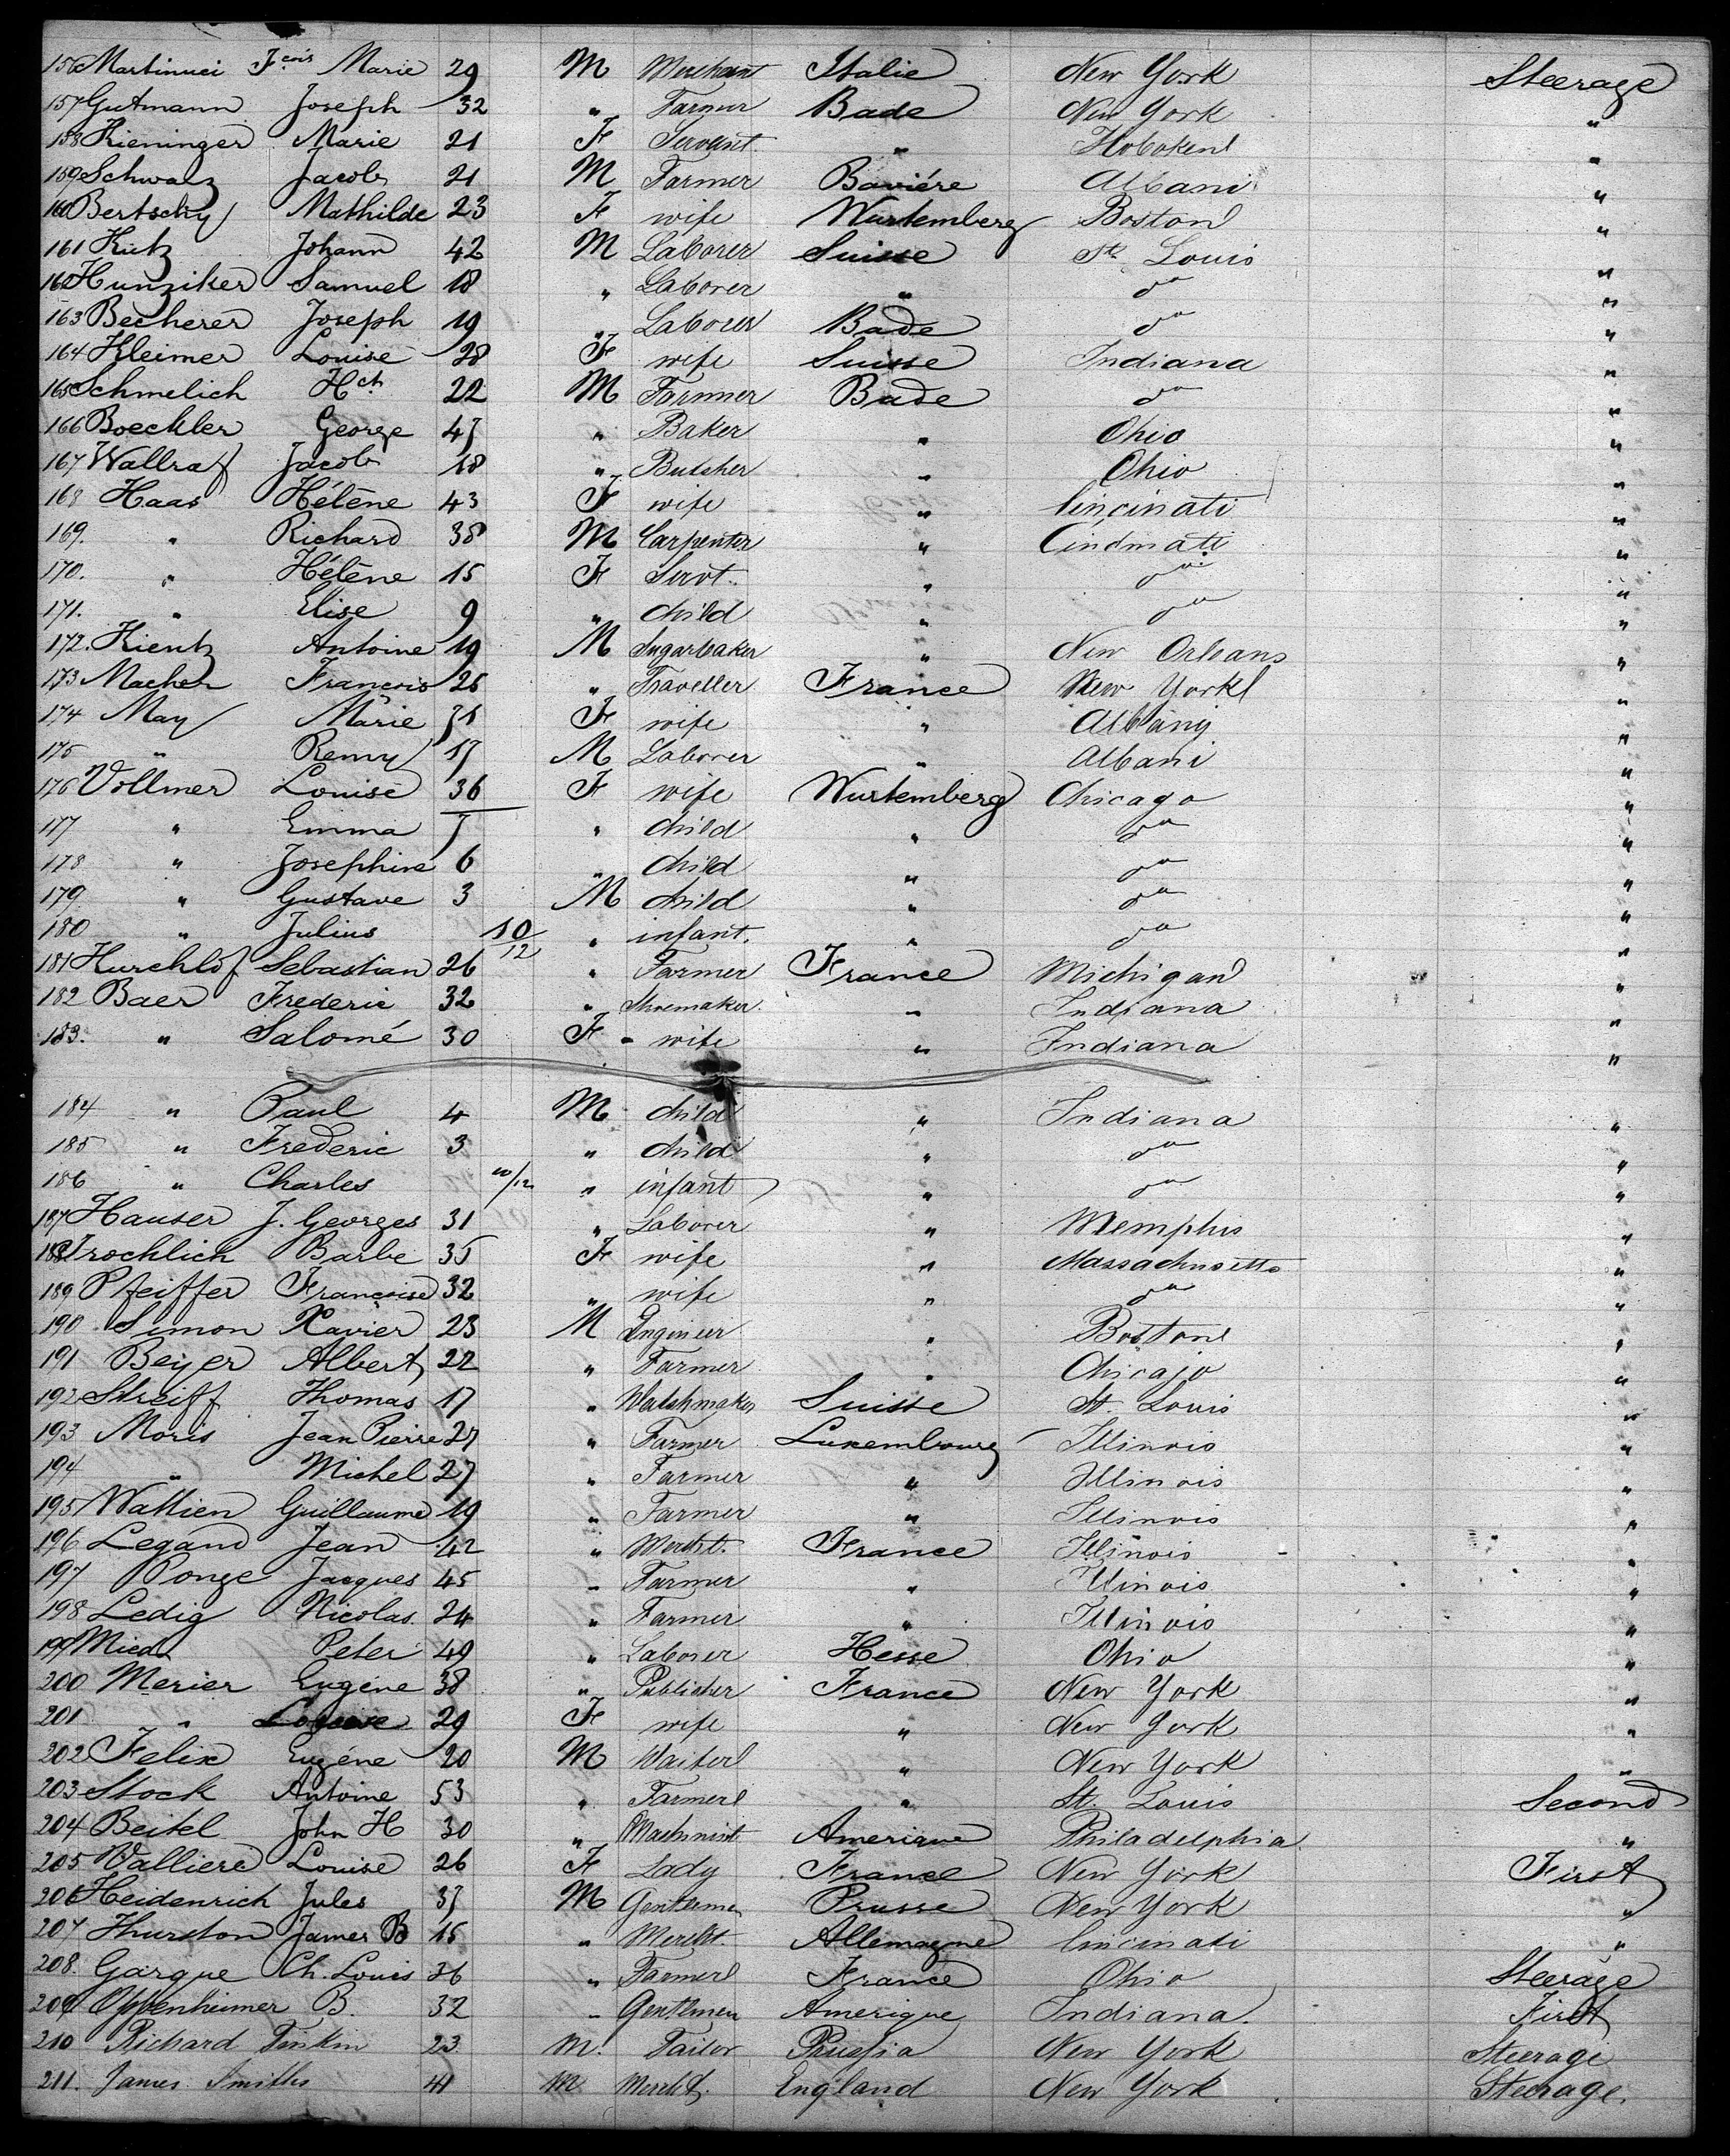 156 Martinuci Fcois Marie 29 M Merchant Italie New York Steerage
157 Gutmann Joseph 32 " Farmer Bade New York "
158 Kieninger Marie 21 F Servant " Hoboken "
159 Schwalz Jacob 21 M Farmer Baviére Albani "
160 Bertschy Mathilde 23 F wife Wurtemberg Boston "
161 Kutz Johann 42 M Laborer Suisse St. Louis "
162 Hunziker Samuel 18 " Laborer " do "
163 Becherer Joseph 19 " Laborer Bade do "
164 Kleimer Louise 28 F wife Suisse Indiana "
165 Schmelich Hch 22 M Farmer Bade do "
166 Boeckler George 47 " Baker " Ohio "
167 Wallraf Jacob 18 " Butcher " Ohio "
168 Haas Hélène 43 F wife " Cincinati "
169. " Richard 38 M Carpenter " Cincinati "
170. " Hélène 15 F Servt. " do "
171. " Elise 9 " child " do "
172. Kientz Antoine 19 M Sugarbaker " New Orleans "
173 Macher François 25 " Traveller France New York "
174 May Marie 51 F wife " Albany "
175 " Remy 17 M Laborer " Albani "
176 Vollmer Louise 36 F wife Wurtemberg Chicago "
177 " Emma 7 " child " do "
178 " Josephine 6 " child " do "
179 " Gustave 3 M child " do "
180 " Julius 10/12 " infant. " do "
181 Hurchlof Sebastian 26 " Farmer France Michigan "
182 Baer Frederic 32 " Shoemaker " Indiana "
183. " Salomé 30 F - wife " Indiana "
184 " Paul 4 M child " Indiana "
185 " Frederic 3 " child " do "
186 " Charles 10/12 " infant " do "
187 Hauser J. Georges 31 " Laborer " Memphis "
188 Froehlich Barbe 35 F wife " Massachusetts "
189 Pfeiffer Françoise 32 " wife " do "
190 Simon Xavier 23 M Engineer " Boston "
191 Beyer Albert 22 " Farmer " Chicajo "
192 Streiff Thomas 17 " Watchmaker Suisse St. Louis "
193 Moris Jean Pierre 27 " Farmer Luxembourg Illinois "
194 " Michel 27 " Farmer " Illinois "
195 Wattien Guillaume 19 " Farmer " Illinois "
196 Legand Jean 42 " Mercht. France Illinois "
197 Ponge Jacques 45 " Farmer " Illinois "
198 Ledig Nicolas 24 " Farmer " Illinois "
199 Peter 49 " Laborer Hesse Ohio "
200 Merier Eugéne 38 " Publisher France New York "
201 " 29 F wife " New York "
202 Felix Eugéne 20 M Waiter " New York "
203 Stock Antoine 53 " Farmer " St. Louis Second
204 Beitel John H 30 " Machinist Amerique Philadelphia "
205 Valliere Louise 26 F Lady France New York First
206 Heidenrich Jules 37 M Gentleman Prusse New York "
207 Thurston James B 15 " Mercht. Allemagne Cincinati "
208. Gargue Ch. Louis 36 " Farmer France Ohio Steerage
209 Oppenheimer B. 32 " Gentlemen Amerique Indiana. First
210 Richard Finkin 23 M. Tailor Prussia New York Steerage
211. James Smiths 41 M Mercht. England New York Steerage.